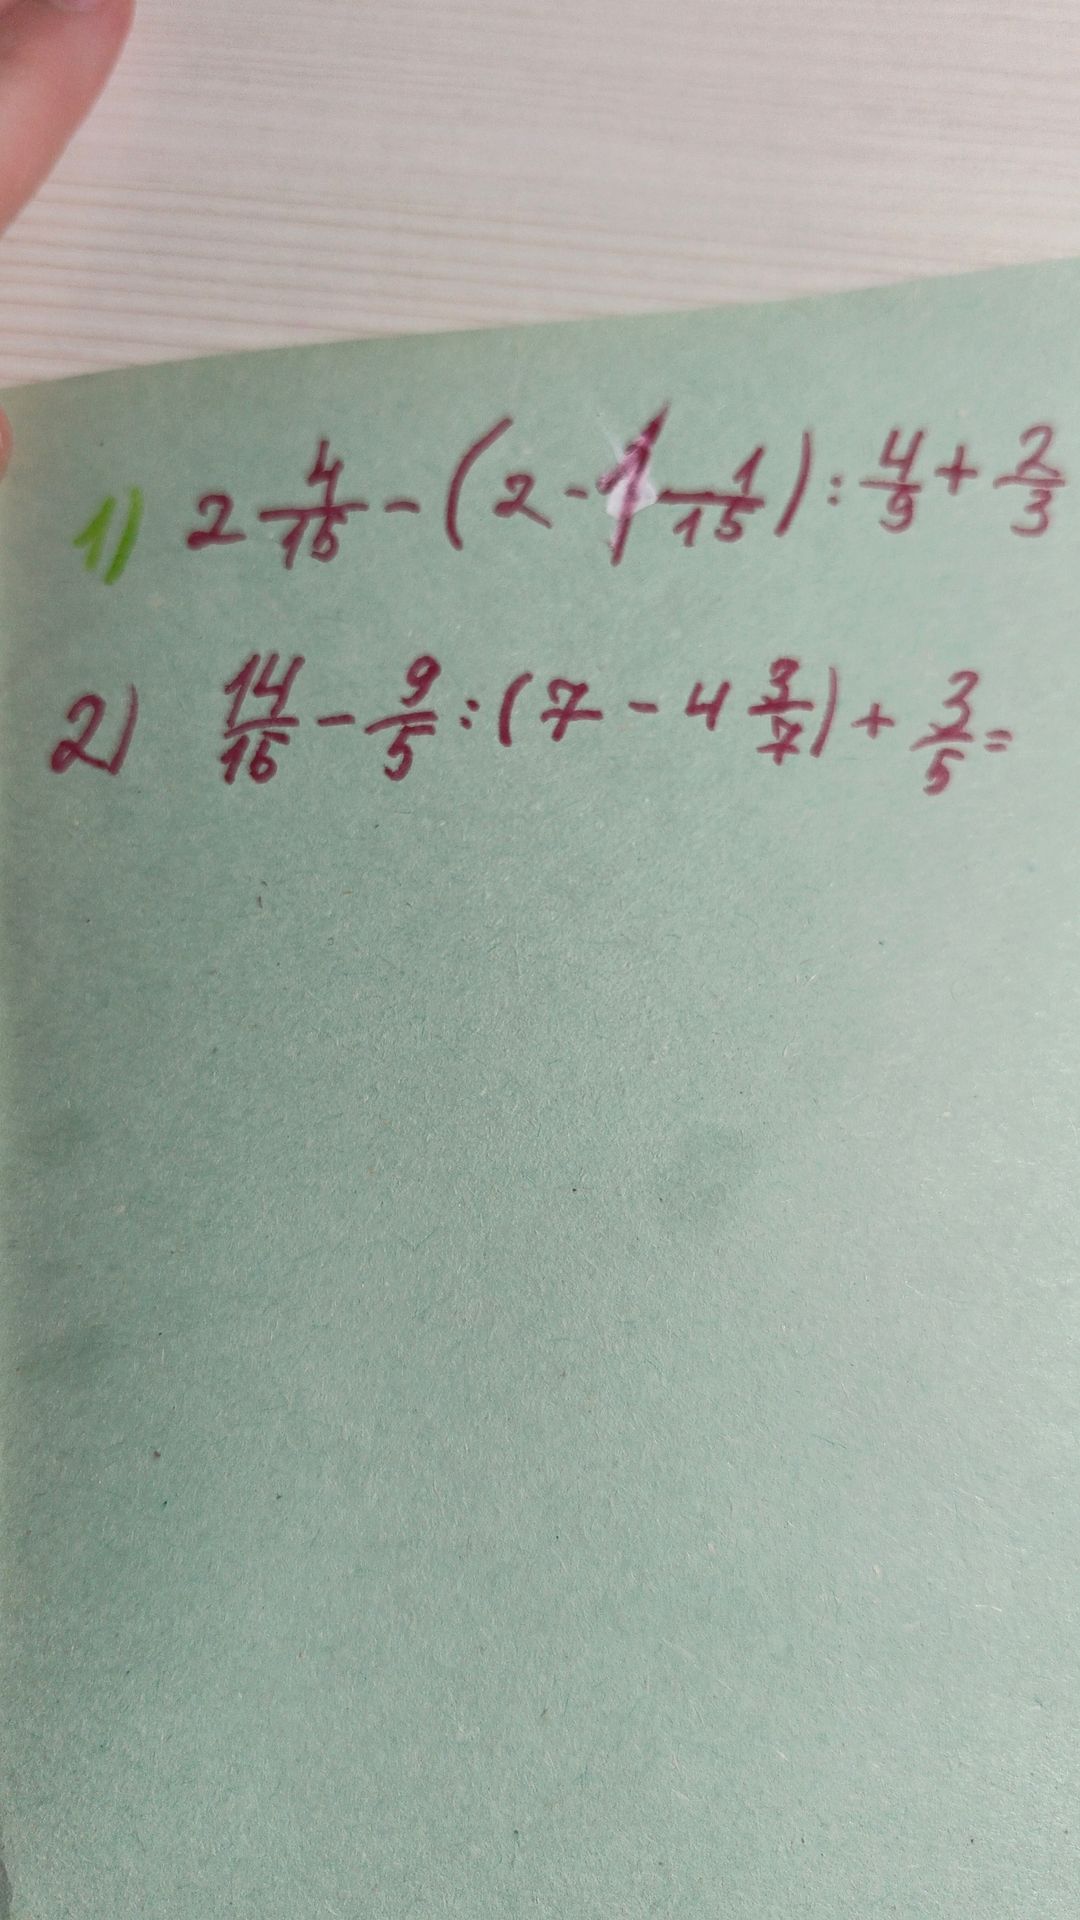 1) 2 4/15 - (2 - 1 1/15) : 4/9 + 2/3
2) 14/15 - 9/5 : (7 - 4 3/7) + 3/5 =